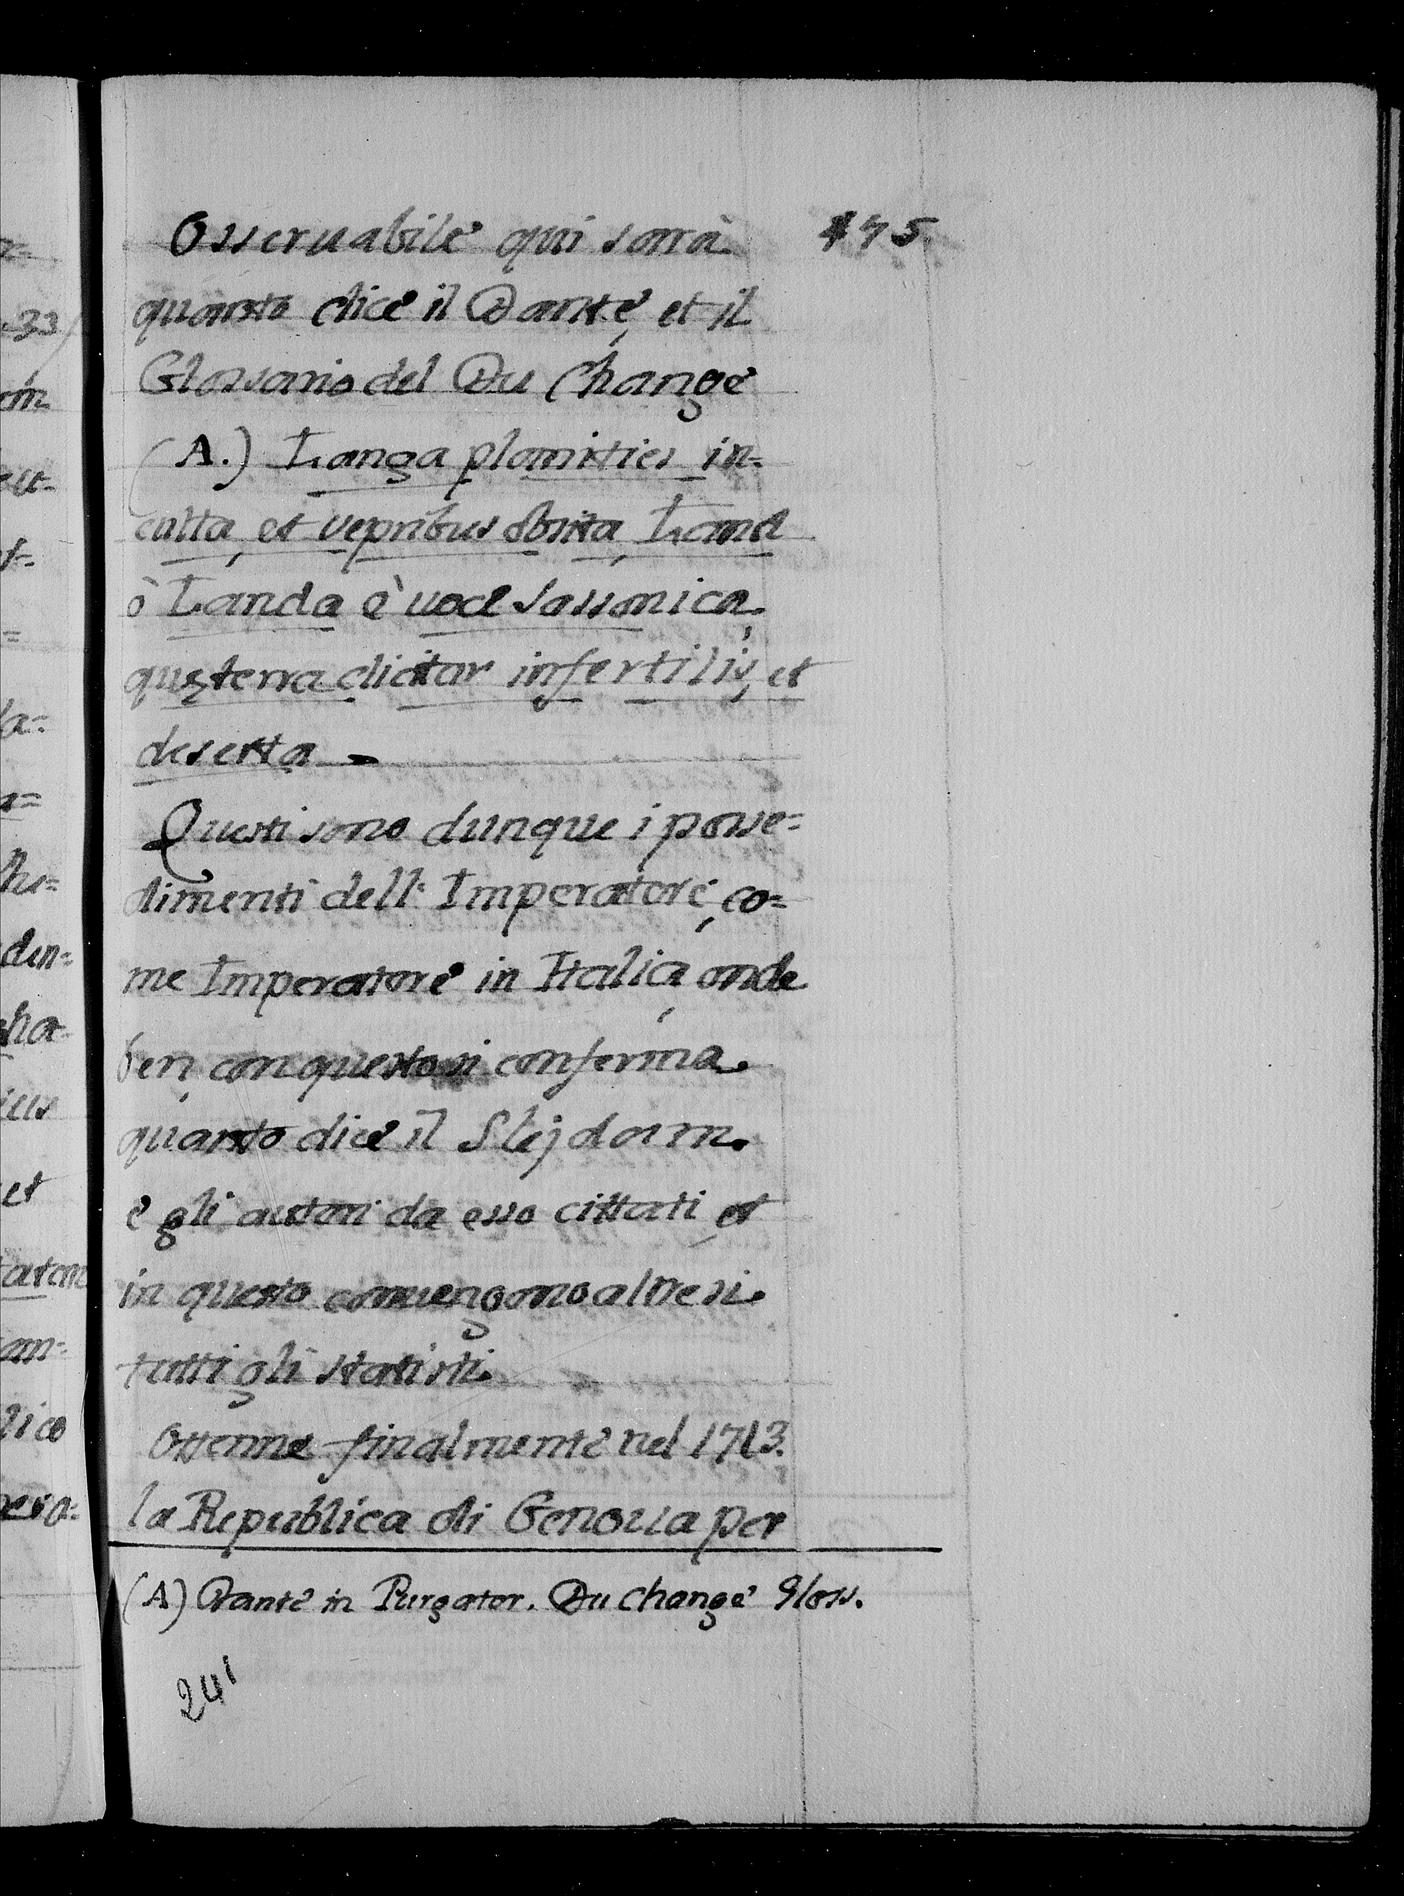 Osseruabile qui sarrà 475.
quanto dice il Dante, et il
Glossario del Du Change
(A.) Langa planities in=
culta, et vepribus obsita, Land
ò Landa è uoce Sassonica,
quę terra dicitur infertilis, et
deserta -
Questi sono dunque i posse=
dimenti dell' Imperatore, co=
me Imperatore in Italia, onde
ben, con questo si conferma
quanto dice il Slejdam.
e gli autori da esso cittati, et
in questo conuengono altresi
tutti gli statisti.
Ottenne finalmente nel 1713.
la Republica di Genoua per
(A) Dante in Purgator. Du Change Gloss.
241
33/
em
et
lico
pera=